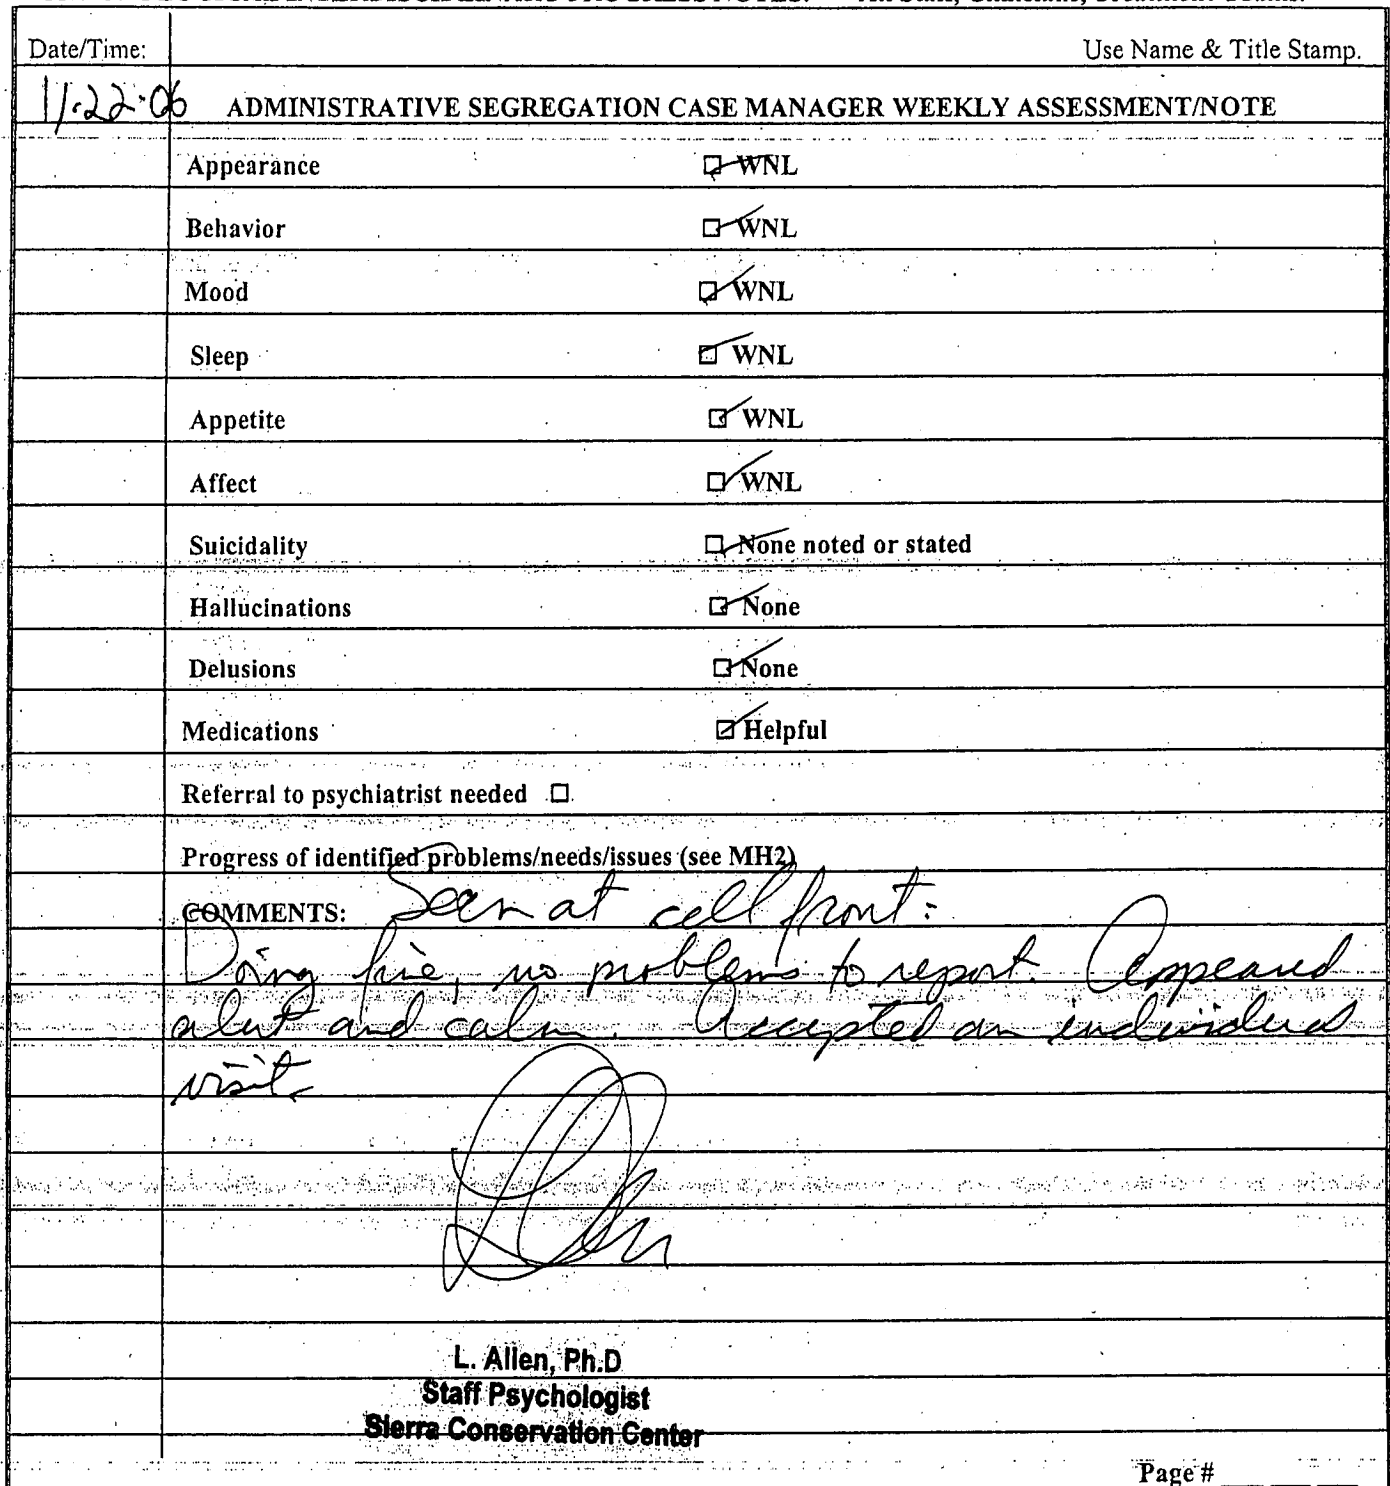 Date/Time: Use Name & Title Stamp.
11-22-06 ADMINISTRATIVE SEGREGATION CASE MANAGER WEEKLY ASSESSMENT/NOTE
Appearance WNL
Behavior WNL
Mood WNL
Sleep WNL
Appetite WNL
Affect WNL
Suicidality None noted or stated
Hallucinations None
Delusions None
Medications Helpful
Referral to psychiatrist needed
Progress of identified problems/needs/issues (see MH2)
COMMENTS: Seen at cell front:
Doing fine, no problems to report. Appeared
alert and calm. Accepted an individual
visit.
L. Allen, Ph.D
Staff Psychologist
Sierra Conservation Center
Page #